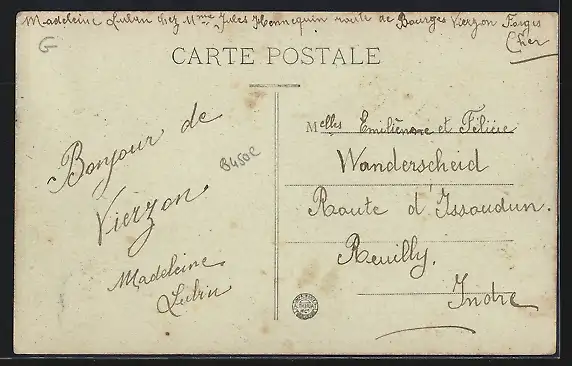 Madeleine Lubru chez Mme Jules Hennequin route de Bourges Vierzon Forges
Cher
CARTE POSTALE
Bonjour de
Vierzon
Madeleine
Lubru
Melles Emilienne et Félicie
Wanderscheid
Route d'Issoudun.
Reuilly.
Indre